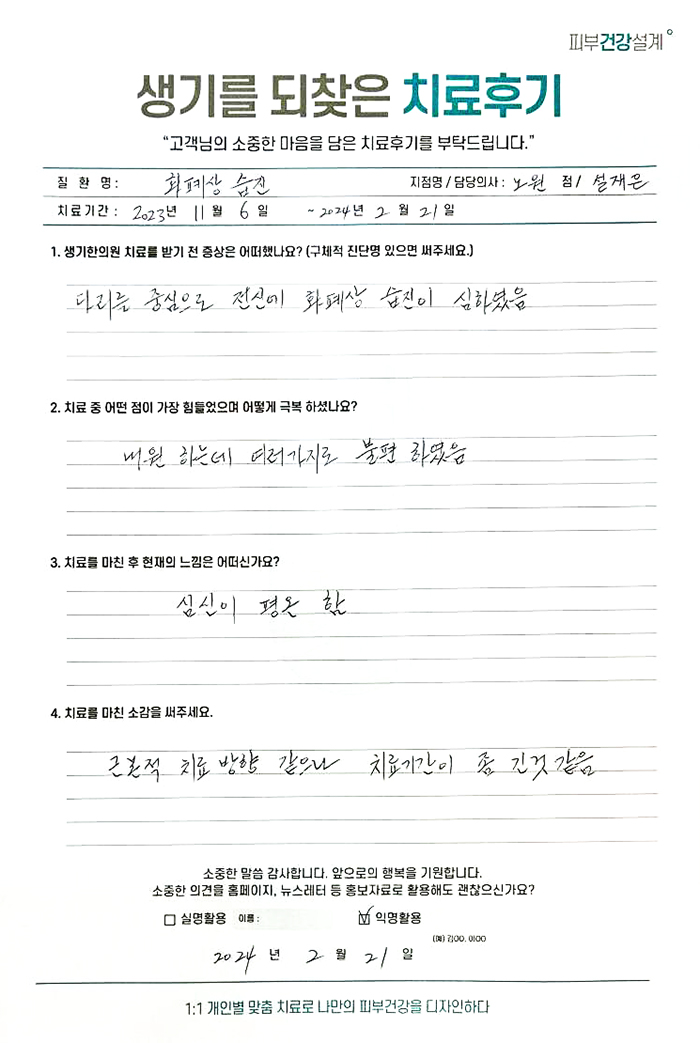 피부건강설계
생기를 되찾은 치료후기
“고객님의 소중한 마음을 담은 치료후기를 부탁드립니다.”
질 환 명 : 화폐상 습진 지점명 / 담당의사 : 노원 점 / 설재은
치료기간 : 2023년 11월 6일 ~2024년 2월 21일
1. 생기한의원 치료를 받기 전 증상은 어떠했나요? (구체적 진단명 있으면 써주세요.)
다리를 중심으로 전신에 화폐상 습진이 심하였음
2. 치료 중 어떤 점이 가장 힘들었으며 어떻게 극복 하셨나요?
내원 하는데 여러가지로 불편 하였음
3. 치료를 마친 후 현재의 느낌은 어떠신가요?
심신이 평온 함
4. 치료를 마친 소감을 써주세요.
근본적 치료 방향 같으나 치료기간이 좀 긴것 같음
소중한 말씀 감사합니다. 앞으로의 행복을 기원합니다.
소중한 의견을 홈페이지, 뉴스레터 등 홍보자료로 활용해도 괜찮으신가요?
실명활용 이름 : 익명활용
(예) 김OO, 이OO
2024 년 2 월 21 일
1:1 개인별 맞춤 치료로 나만의 피부건강을 디자인하다